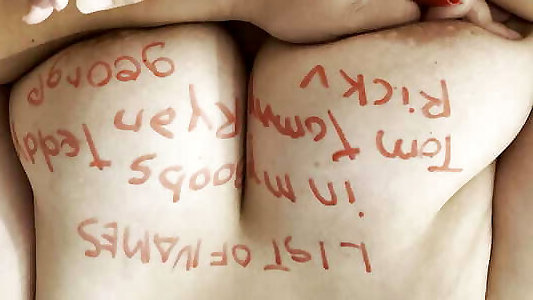 LIST OF NAMES
in my boobs Tedd
Tom Tomm Ryan
Ricky george